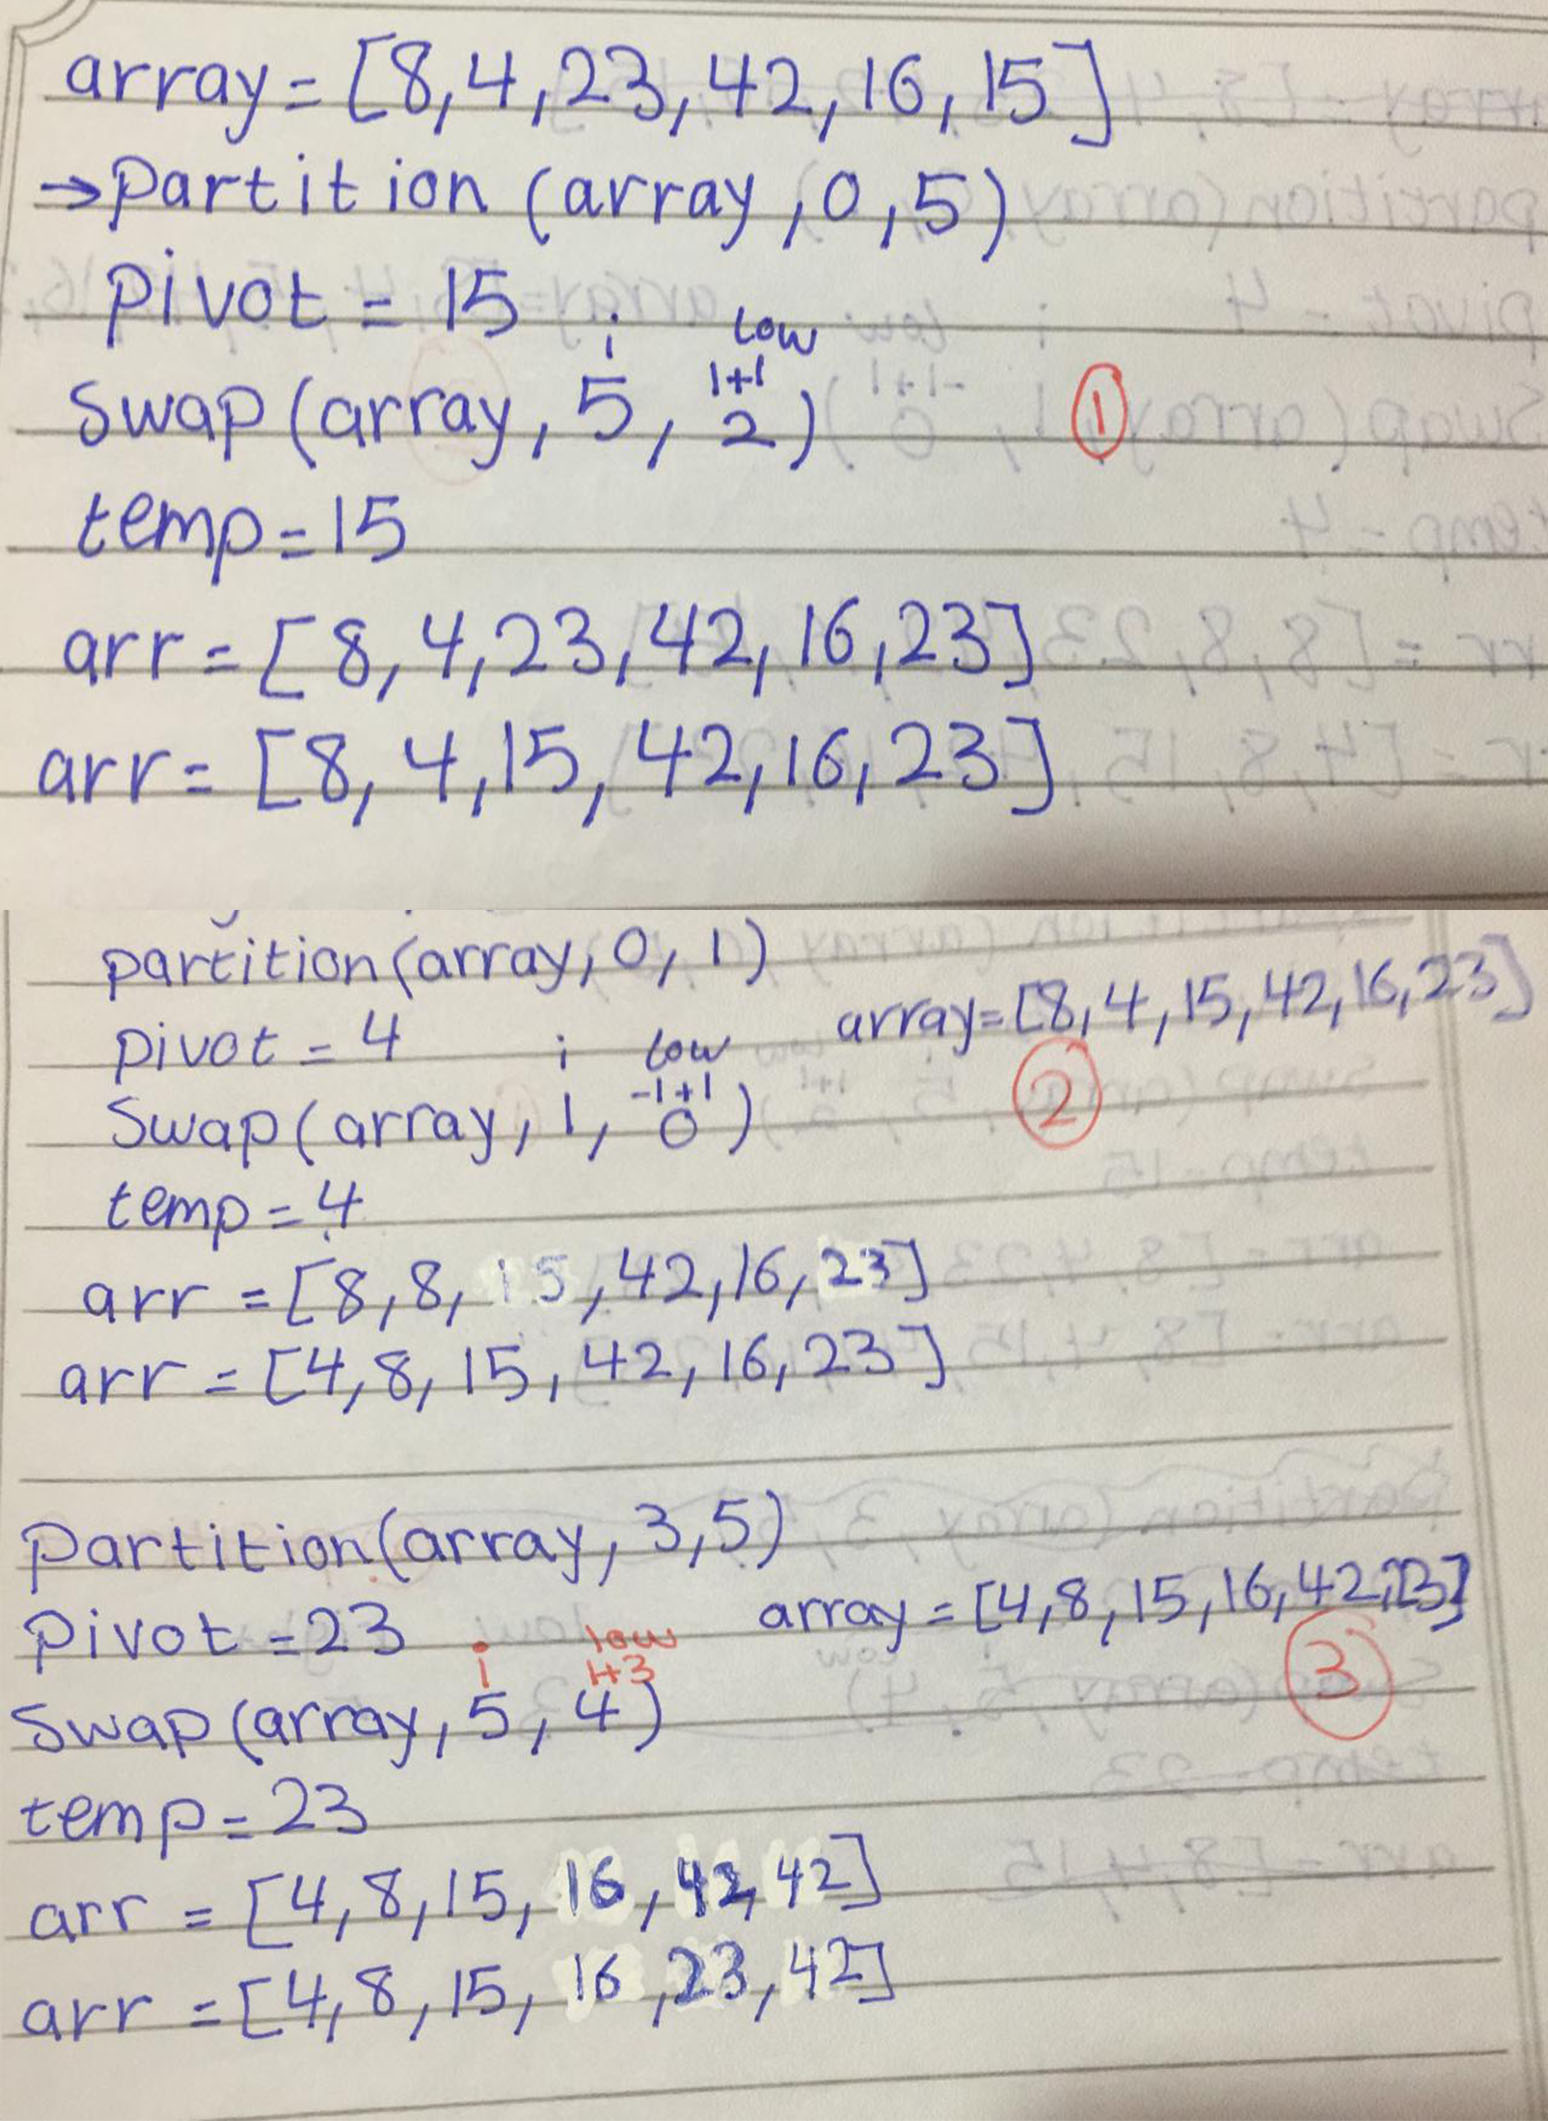 array = [8,4,23,42,16,15]
→ partition (array,0,5)
pivot = 15
i low
1+1
swap (array, 5, 2)
①
temp = 15
arr = [8,4,23,42,16,23]
arr = [8,4,15,42,16,23]
partition (array, 0, 1)
array = [8,4,15,42,16,23]
pivot = 4
i low
-1+1
②
Swap (array, 1, 0)
temp = 4
arr = [8,8,15,42,16,23]
arr = [4,8,15,42,16,23]
Partition (array, 3,5)
array = [4,8,15,16,42,23]
pivot = 23
i low
1+3
③
Swap (array, 5, 4)
temp = 23
arr = [4,8,15,16,42,42]
arr = [4,8,15,16,23,42]